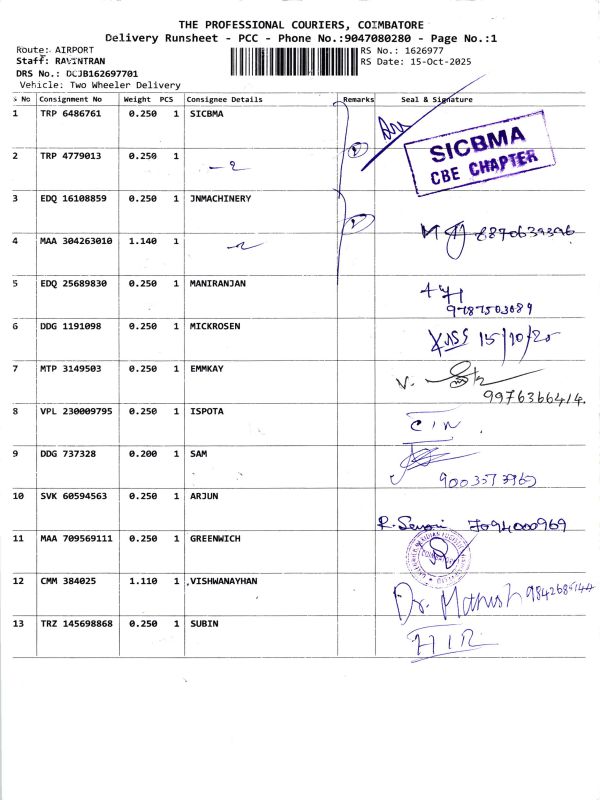 THE PROFESSIONAL COURIERS, COIMBATORE
Delivery Runsheet - PCC - Phone No.:9047080280 - Page No.:1
Route: AIRPORT RS No.: 1626977
Staff: RAVINTRAN RS Date: 15-Oct-2025
DRS No.: DCJB162697701
Vehicle: Two Wheeler Delivery
S No Consignment No Weight PCS Consignee Details Remarks Seal & Signature
1 TRP 6486761 0.250 1 SICBMA
SICBMA
CBE CHAPTER
2 TRP 4779013 0.250 1
3 EDQ 16108859 0.250 1 JNMACHINERY
4 MAA 304263010 1.140 1
5 EDQ 25689830 0.250 1 MANIRANJAN
6 DDG 1191098 0.250 1 MICKROSEN
15/10/25
7 MTP 3149503 0.250 1 EMMKAY
9976366414.
8 VPL 230009795 0.250 1 ISPOTA
9 DDG 737328 0.200 1 SAM
10 SVK 60594563 0.250 1 ARJUN
7094000969
11 MAA 709569111 0.250 1 GREENWICH
12 CMM 384025 1.110 1 ,VISHWANAYHAN
13 TRZ 145698868 0.250 1 SUBIN